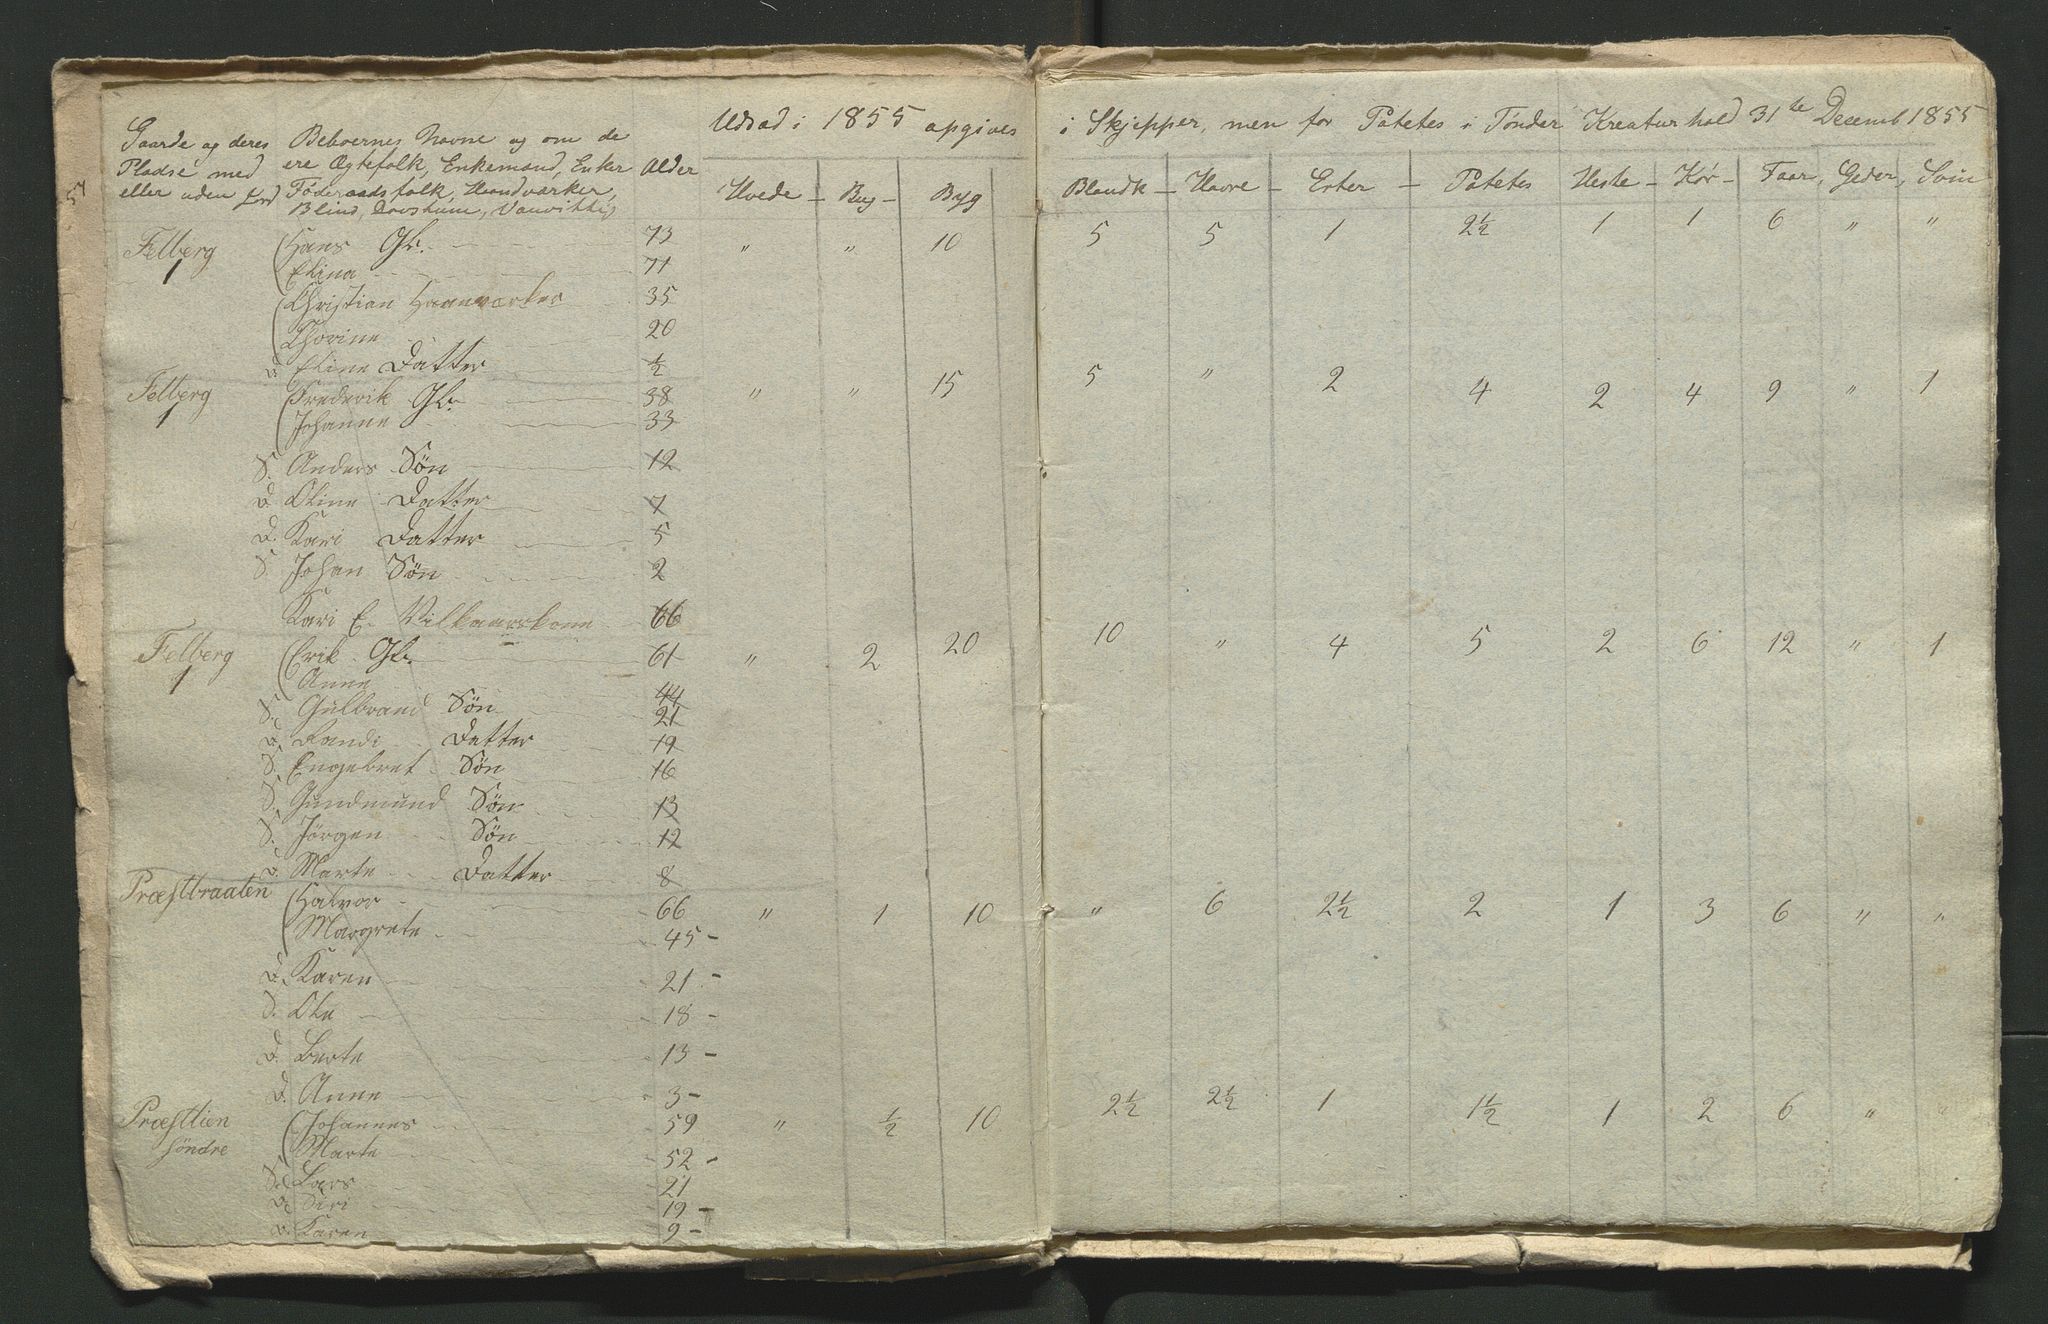 Udsad i 1855 opgives i Skjepper, men for Patetes i Tønder Kreaturhold 31te Decemb 1855
Gaarde og deres Beboernes Navne og om de
Pladse med ere Ægtefolk, Enkemænd, Enker Alder
eller uden Jord Føderaadsfolk, Haandværker,
Blind, Døvstum, Vanvittig
Hvede - Rug - Byg Blandk - Havre - Erter - Patetes Heste - Kör - Faar, Geder, Svin
Felberg 1 Hans Gbr. 73 " " 10 5 5 1 2½ 1 1 6 " "
Elina 71
Christian Haanværker 35
Thorine 20
D. Eline Datter ½
Felberg 1 Frederik Gbr. 38 " " 15 5 " 2 4 2 4 9 " 1
Johanne 33
S. Anders Søn 12
D. Oline Datter 7
D. Kari Datter 5
S. Johan Søn 2
Kari E. Vilkaarskone 66
Felberg 1 Erik Gbr. 61 " 2 20 10 " 4 5 2 6 12 " 1
Anne 44
S. Gulbrand Søn 21
D. Randi Datter 19
S. Engebret Søn 16
S. Gundmund Søn 13
S. Jörgen Søn 12
D. Marte Datter 8
Præstbraaten Halvor 66 " 1 10 " 6 2½ 2 1 3 6 " "
Margrete 45 -
D. Karen 21 -
S. Ole 18 -
D. Berte 13 -
D. Anne 3 -
Præstlien Johannes 59 " ½ 10 2½ 2½ 1 1½ 1 2 6 " "
söndre Marte 52 -
S. Lars 21
D. Siri 19 -
D. Karen 9 -